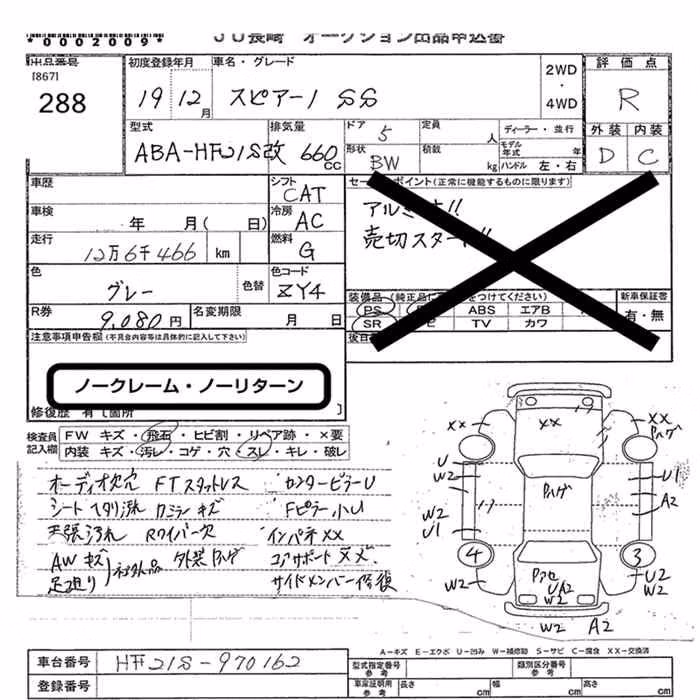 *0002009*
JU長崎 オークション出品申込書
出品番号
[867]
288
初度登録年月
19 12月
車名・グレード
スピアーノ SS
2WD
・
4WD
評価点
R
外装 内装
D C
型式
ABA-HF21S改
排気量
660cc
ドア 5
定員 人
ディーラー・並行
モデル年式 年
形状
BW
積載 kg
ハンドル 左・右
車歴
シフト
CAT
車検 年 月( 日)
冷房
AC
走行
12万6千466 km
燃料
G
色
グレー
色替
色コード
ZY4
R券
9,080円
名変期限 月 日
セールスポイント(正常に機能するものに限ります)
アルミ
売切スタート!!
装備品
(純正品に つけてください)
PS ABS エアB
SR TV カワ
新車保証書
有・無
後日
注意事項申告欄(不具合内容等は具体的に記入して下さい)
ノークレーム・ノーリターン
修復歴 有〔箇所 〕
検査員記入欄
FW キズ・飛石・ヒビ割・リペア跡・×要
内装 キズ・汚レ・コゲ・穴・スレ・キレ・破レ
オーディオ欠穴 FTスタットレス センターピラーU
シートヘタリ汚れ カミラーキズ Fピラー小U
天張汚れ Rワイパー欠 インパネXX
AWキズ 社外品 外装ハゲ コアサポートXX
足廻り サイドメンバー修復
XX XX
ハゲ
U W2
ハゲ
U1
A2
W2 U1
4 3
W2
UA2
W2
U2
W2
W2 A2
A-キズ E-エクボ U-凹み W-補修跡 S-サビ C-腐食 XX-交換済
車台番号 HF21S-970162
登録番号
型式指定番号 参考
類別区分番号 参考
車庫証明用 参考
長さ cm 幅 cm 高さ cm